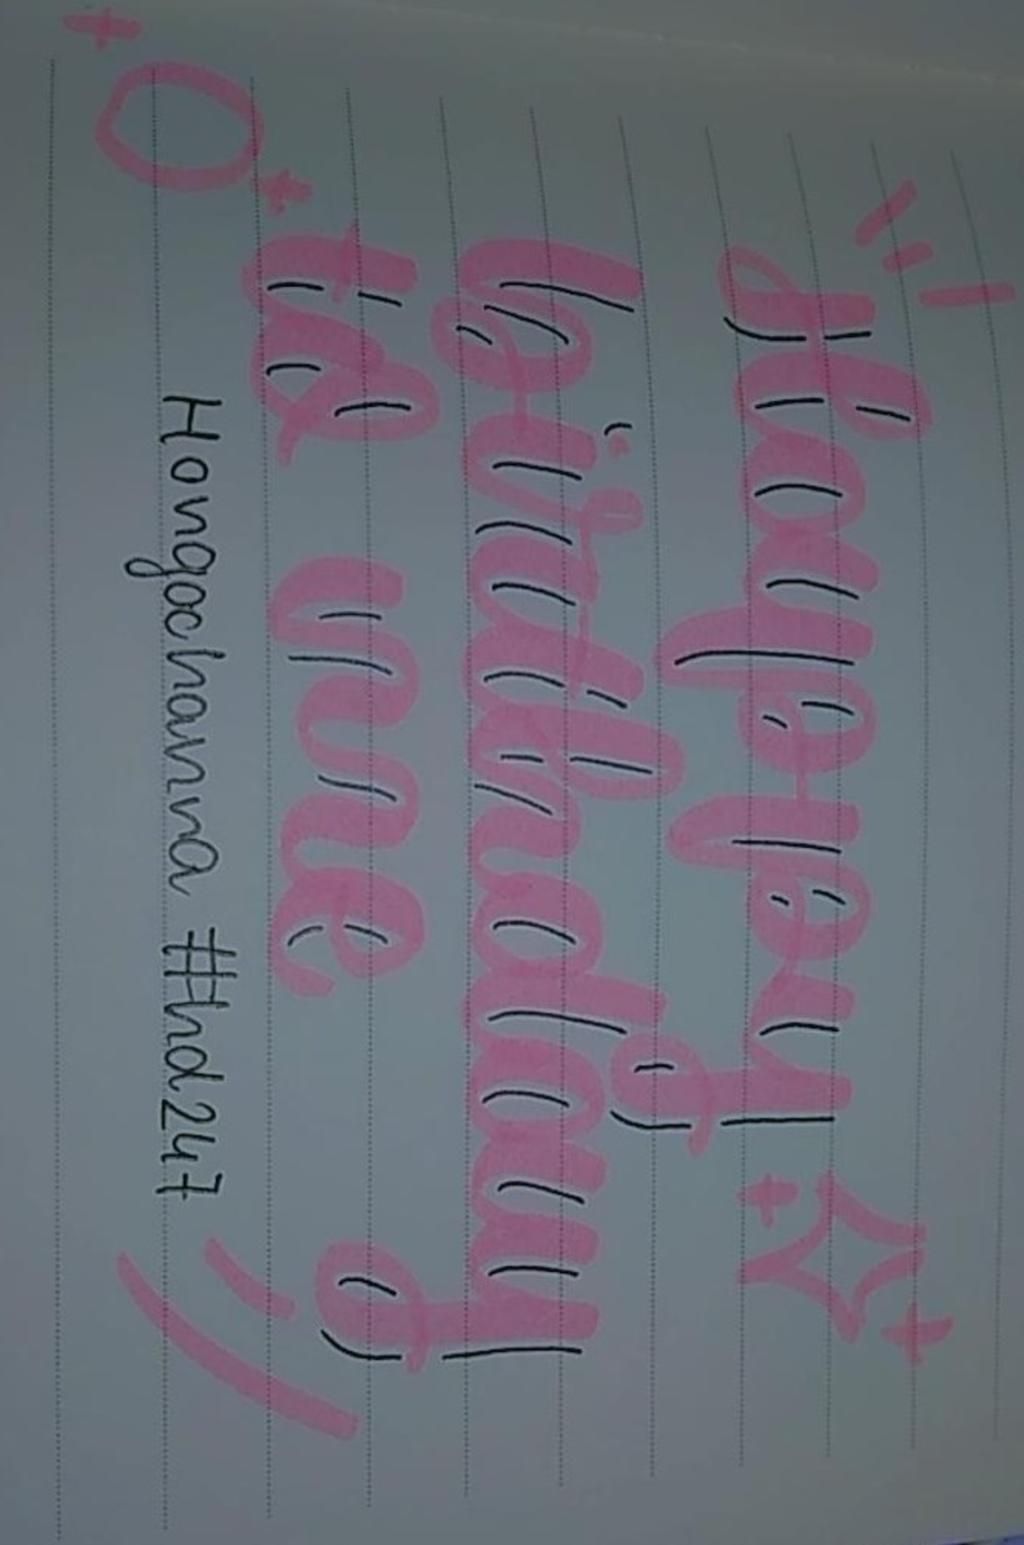 Happy
birthday
to me
Hongochanna #hd247